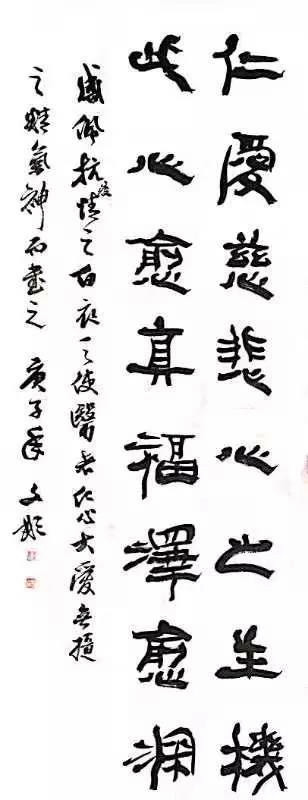 仁愛慈悲心之生機
此心愈真福澤愈
感佩抗疫情之白衣天使醫者仁心大愛無疆
之精氣神而書之 庚子年 文